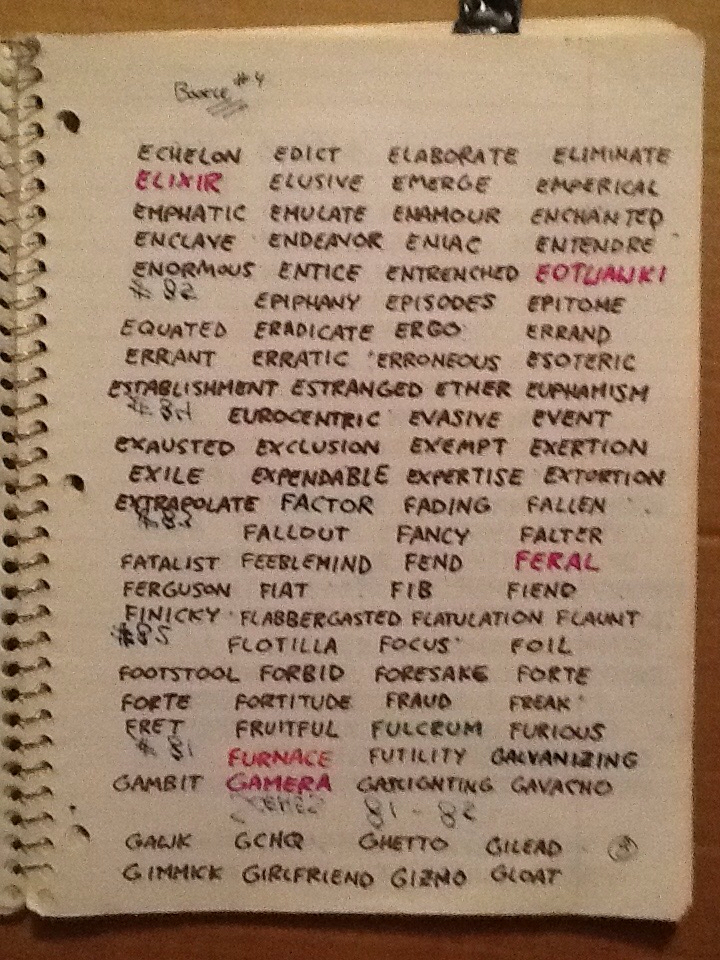 #4
ECHELON EDICT ELABORATE ELIMINATE
ELIXIR ELUSIVE EMERGE EMPERICAL
EMPHATIC EMULATE ENAMOUR ENCHANTED
ENCLAVE ENDEAVOR ENIAC ENTENDRE
ENORMOUS ENTICE ENTRENCHED
#82 EPIPHANY EPISODES EPITOME
EQUATED ERADICATE ERGO ERRAND
ERRANT ERRATIC ERRONEOUS ESOTERIC
ESTABLISHMENT ESTRANGED ETHER EUPHAMISM
#84 EUROCENTRIC EVASIVE EVENT
EXAUSTED EXCLUSION EXEMPT EXERTION
EXILE EXPENDABLE EXPERTISE EXTORTION
EXTRAPOLATE FACTOR FADING FALLEN
#83 FALLOUT FANCY FALTER
FATALIST FEEBLEMIND FEND FERAL
FERGUSON FIAT FIB FIEND
FINICKY FLABBERGASTED FLATULATION FLAUNT
#85 FLOTILLA FOCUS FOIL
FOOTSTOOL FORBID FORESAKE FORTE
FORTE FORTITUDE FRAUD FREAK
FRET FRUITFUL FULCRUM FURIOUS
#81 FURNACE FUTILITY GALVANIZING
GAMBIT GAMERA GASLIGHTING GAVACHO
81-82
GAWK GCHQ GHETTO GILEAD
GIMMICK GIRLFRIEND GIZMO GLOAT